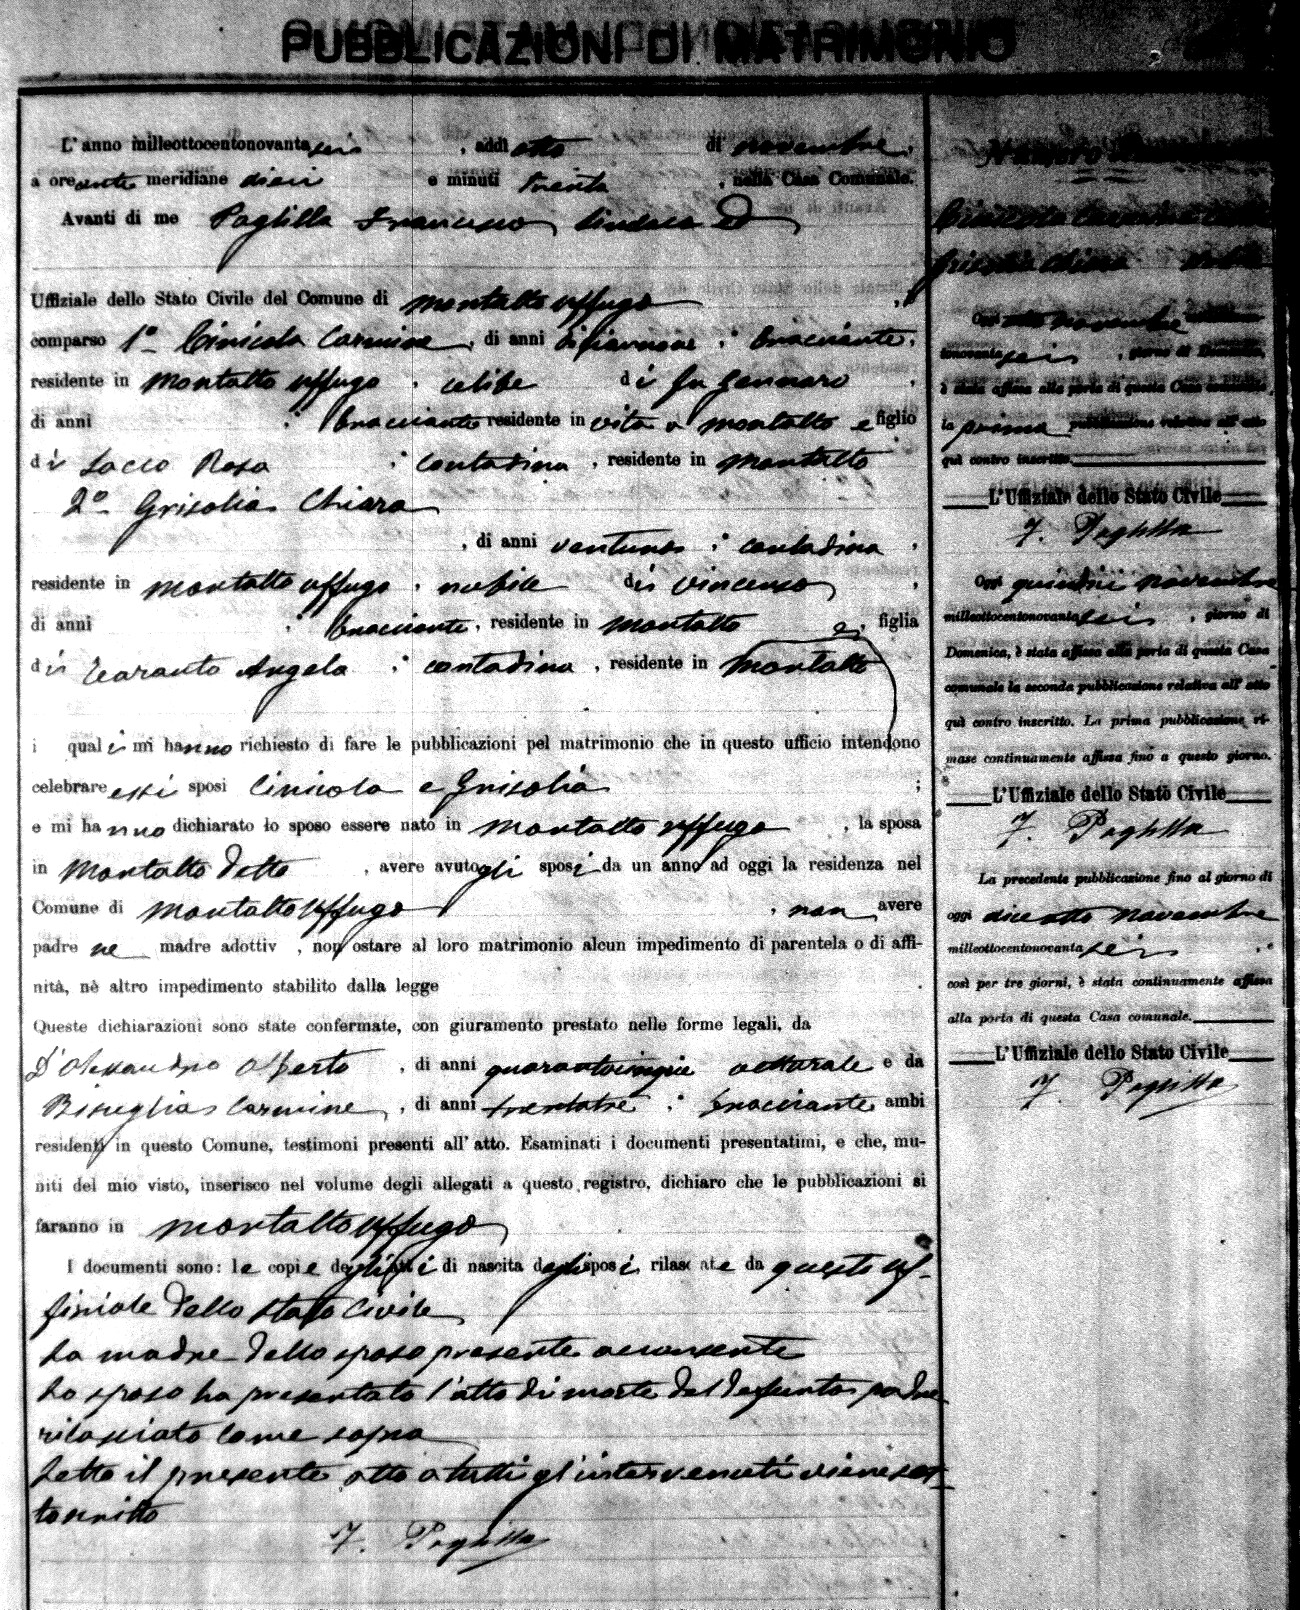 PUBBLICAZIONI DI MATRIMONIO
L'anno milleottocentonovantasei, addì otto di novembre,
a ore anti meridiane dieci e minuti trenta, nella Casa Comunale.
Avanti di me Paglilla Francesco Sindaco
Uffiziale dello Stato Civile del Comune di Montalto Uffugo
comparso 1º Cinicola Carmine, di anni diciannove; bracciante,
residente in Montalto Uffugo, celibe di fu Gennaro,
di anni ; bracciante residente in vita a Montalto e figlio
di Sacco Rosa ; contadina, residente in Montalto
2º Grisolia Chiara
, di anni ventuno; contadina,
residente in Montalto Uffugo, nubile di Vincenzo,
di anni ; bracciante, residente in Montalto e, figlia
di Taranto Angela ; contadina, residente in Montalto
i quali mi hanno richiesto di fare le pubblicazioni pel matrimonio che in questo ufficio intendono
celebrare essi sposi Cinicola e Grisolia ;
e mi hanno dichiarato lo sposo essere nato in Montalto Uffugo, la sposa
in Montalto detto, avere avuto gli sposi da un anno ad oggi la residenza nel
Comune di Montalto Uffugo, non avere
padre ne madre adottiv , non ostare al loro matrimonio alcun impedimento di parentela o di affi-
nità, nè altro impedimento stabilito dalla legge .
Queste dichiarazioni sono state confermate, con giuramento prestato nelle forme legali, da
D'Alessandro Alberto, di anni quarantacinque vetturale e da
Bisciglia Carmine, di anni trentatre; bracciante ambi
residenti in questo Comune, testimoni presenti all'atto. Esaminati i documenti presentatimi, e che, mu-
niti del mio visto, inserisco nel volume degli allegati a questo registro, dichiaro che le pubblicazioni si
faranno in Montalto Uffugo
I documenti sono: le copie degli atti di nascita degli sposi, rilasciate da questo uf-
finiale dello stato civile
La madre dello sposo presente acconsente
Lo sposo ha presentato l'atto di morte del defunto padre
rilasciato come sopra
Letto il presente atto a tutti gl'intervenuti viene sot-
toscritto
F. Paglilla
Numero
Cinicola Carmine
Grisolia Chiara
Oggi otto novembre
tonovantasei, giorno di Domenica,
è stata affissa alla porta di questa Casa comunale
la prima pubblicazione relativa all'atto
quì contro inscritto.
L'Uffiziale dello Stato Civile
F. Paglilla
Oggi quindici novembre
milleottocentonovantasei, giorno di
Domenica, è stata affissa alla porta di questa Casa
comunale la seconda pubblicazione relativa all'atto
quì contro inscritto. La prima pubblicazione ri-
mase continuamente affissa fino a questo giorno.
L'Uffiziale dello Stato Civile
F. Paglilla
La precedente pubblicazione fino al giorno di
oggi diciotto novembre
milleottocentonovantasei, e
così per tre giorni, è stata continuamente affissa
alla porta di questa Casa comunale.
L'Uffiziale dello Stato Civile
F. Paglilla